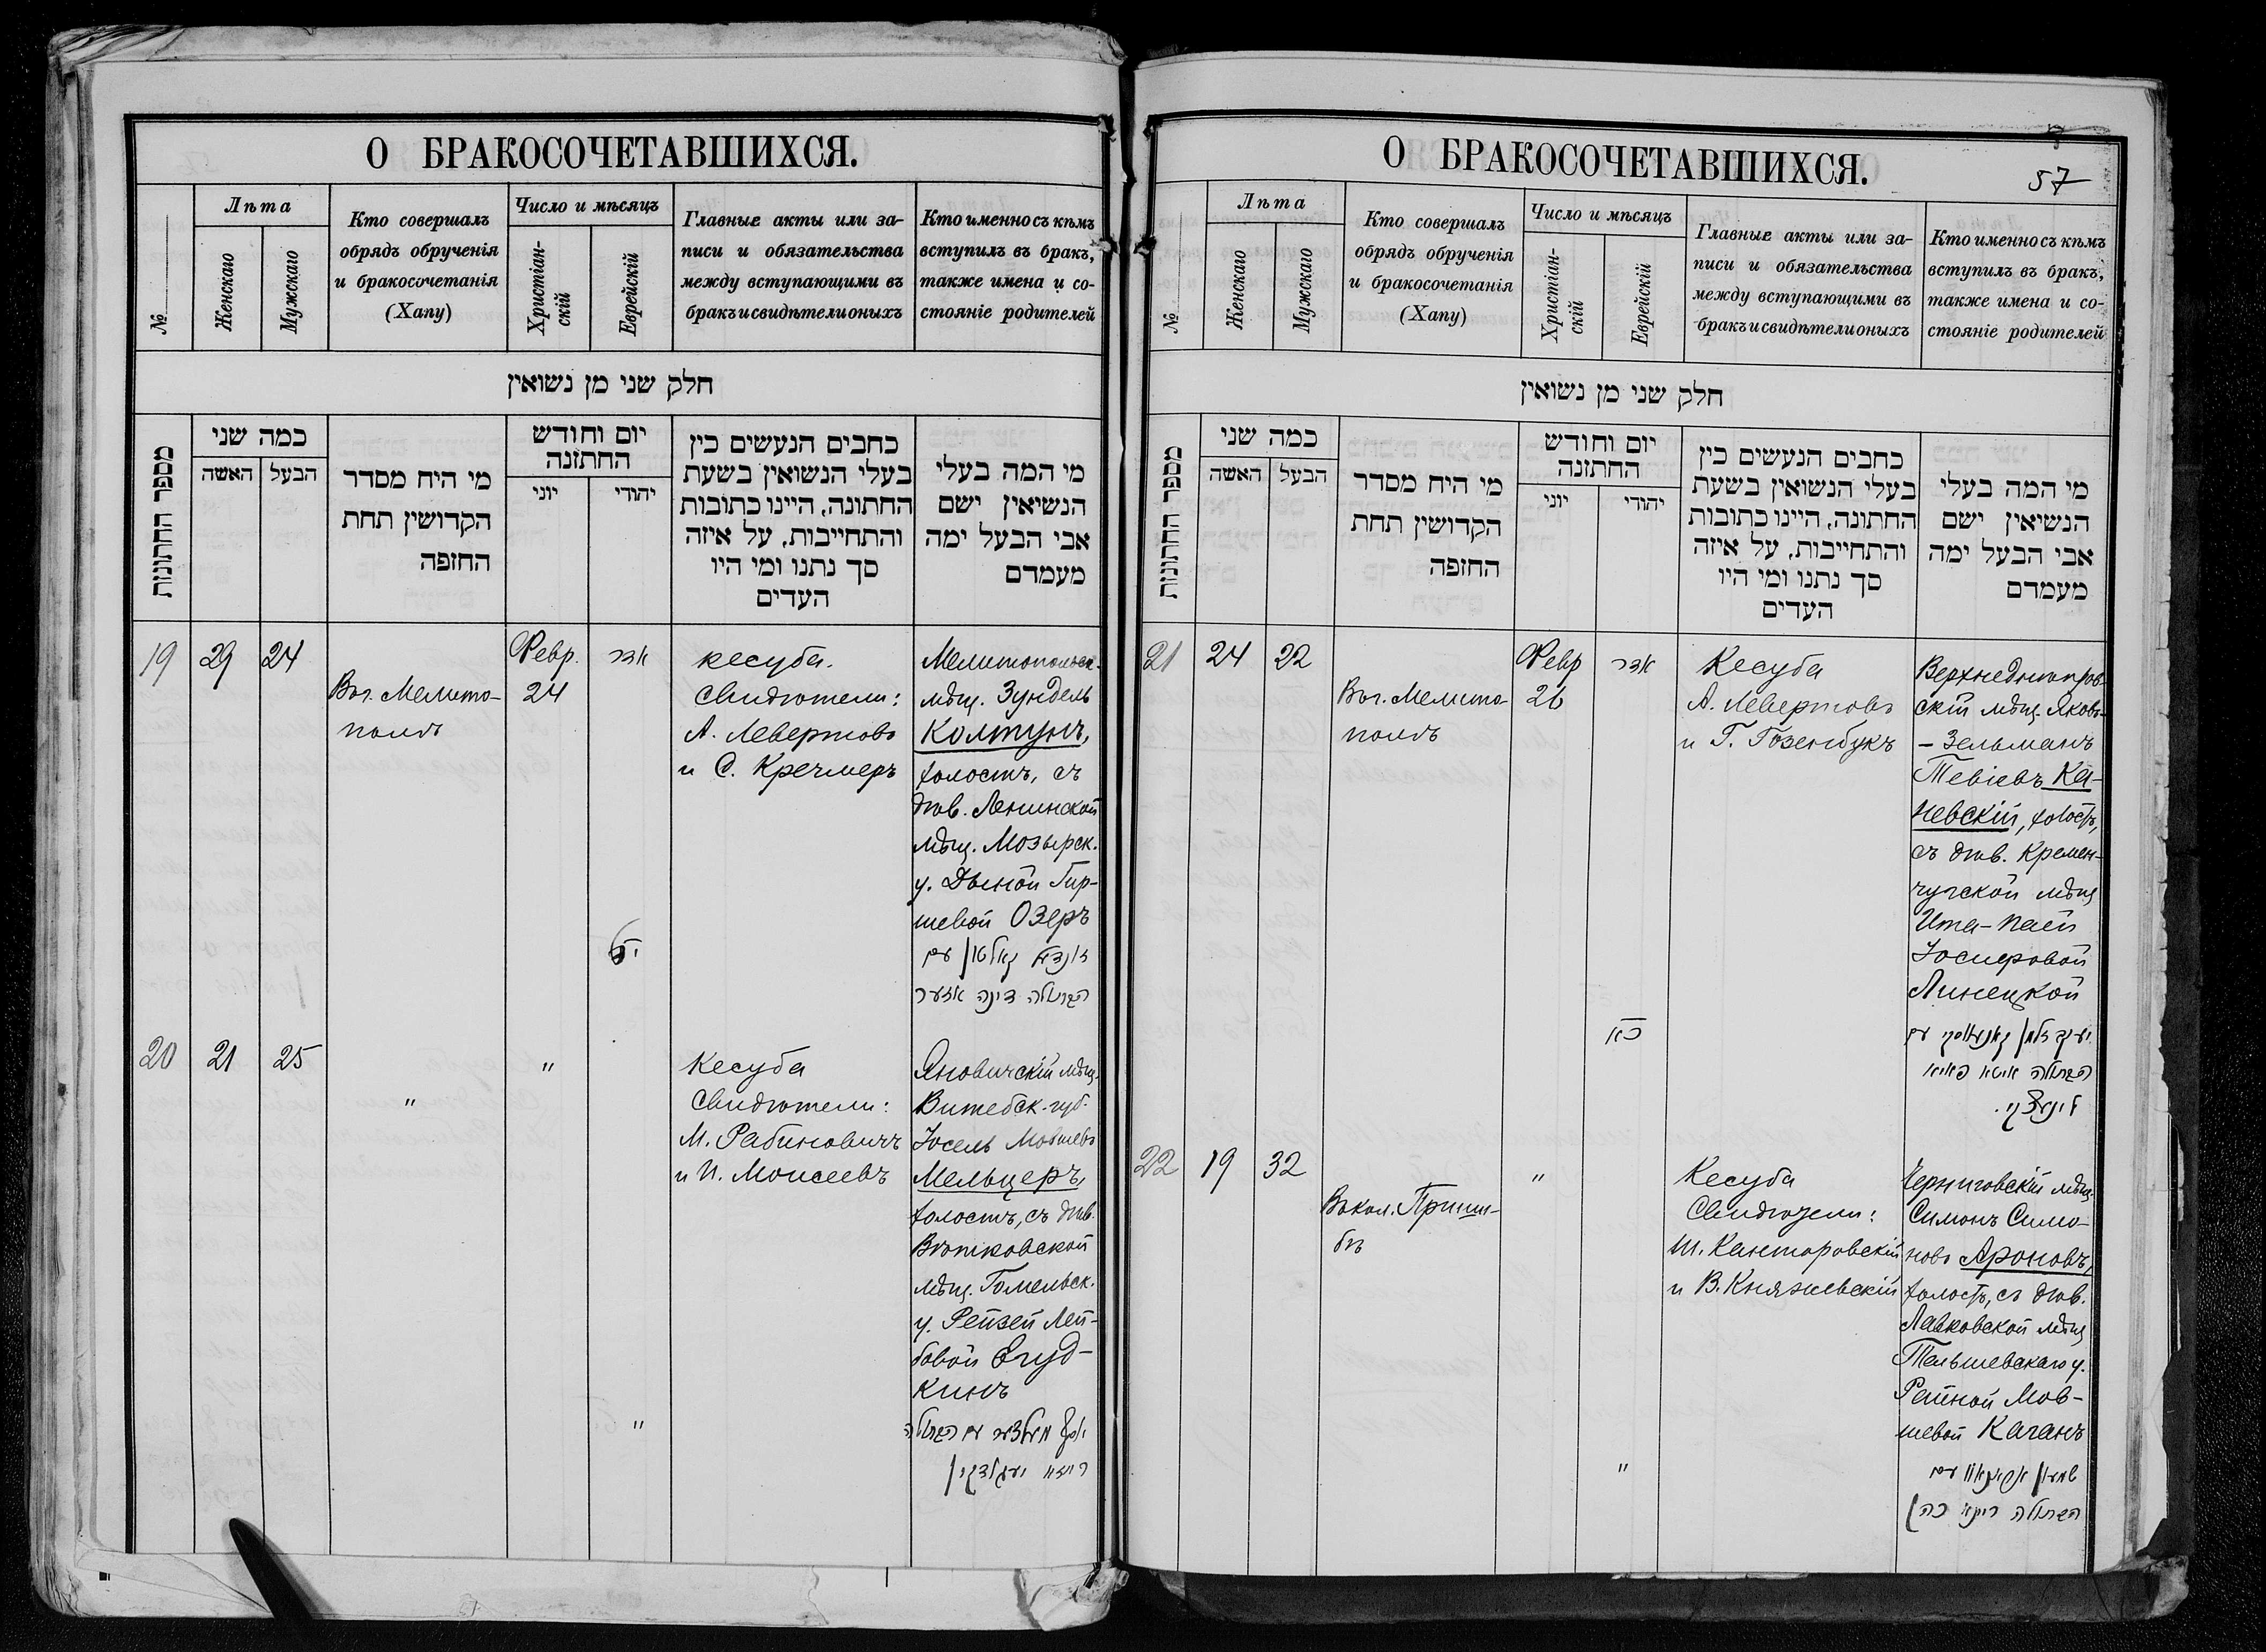 О БРАКОСОЧЕТАВШИХСЯ.
№
Лѣта
Женскаго
Мужскаго
Кто совершалъ
обрядъ обрученія
и бракосочетанія
(Хапу)
Число и мѣсяцъ
Христіан-
скій
Еврейскій
Главные акты или за-
писи и обязательства
между вступающими въ
бракъ и свидѣтели оныхъ
Кто именно съ кѣмъ
вступилъ въ бракъ,
также имена и со-
стояніе родителей
חלק שני מן נשואין
מספר החתונות
כמה שני
האשה
הבעל
מי היח מסדר
הקדושין תחת
החזפה
יום וחודש
החתזנה
יוני
יהודי
כחבים הנעשים כין
בעלי הנשואין בשעת
החתונה, היינו כתובות
והתחייבות, על איזה
סך נתנו ומי היו
העדים
מי המה בעלי
הנשיאין ישם
אבי הבעל ימה
מעמדם
19
29
24
Въ г. Мелито-
полѣ
Февр.
24
אדר
יט
кесуба.
Свидѣтели:
А. Левертовъ
и С. Кречмеръ
Мелитопольск.
мѣщ. Зундель
Колтунъ,
холостъ, съ
дѣв. Ленинской
мѣщ. Мозырск.
у. Дыной Гир-
шевой Озеръ
זונדל קאלטון עם
הבתולה דינה אזער
20
21
25
"
"
"
Кесуба
Свидѣтели:
М. Рабиновичъ
и И. Моисеевъ
Яновичскій мѣщ.
Витебск. губ.
Іосель Мовшевъ
Мельцеръ,
холостъ, съ дѣв.
Вѣтковской
мѣщ. Гомельск.
у. Рейзей Лей-
бовой Егуд-
кинъ
יוסף מעלצער עם הבתולה
О БРАКОСОЧЕТАВШИХСЯ.
57
№
Лѣта
Женскаго
Мужскаго
Кто совершалъ
обрядъ обрученія
и бракосочетанія
(Хапу)
Число и мѣсяцъ
Христіан-
скій
Еврейскій
Главные акты или за-
писи и обязательства
между вступающими въ
бракъ и свидѣтели оныхъ
Кто именно съ кѣмъ
вступилъ въ бракъ,
также имена и со-
стояніе родителей
חלק שני מן נשואין
מספר החתונות
כמה שני
האשה
הבעל
מי היח מסדר
הקדושין תחת
החזפה
יום וחודש
החתזנה
יוני
יהודי
כחבים הנעשים כין
בעלי הנשואין בשעת
החתונה, היינו כתובות
והתחייבות, על איזה
סך נתנו ומי היו
העדים
מי המה בעלי
הנשיאין ישם
אבי הבעל ימה
מעמדם
21
24
22
Въ г. Мелито-
полѣ
Февр
26
אדר
כא
Кесуба
А. Левертовъ
и Г. Гозенбукъ
Верхнеднѣпров-
скій мѣщ. Яковъ-
- Зельманъ
Тевіевъ Ка-
невскій, холостъ,
съ дѣв. Кремен-
чугской мѣщ
Ита-Паей
Іосифовой
Линецкой
יעקב זלמן קאנעווסקי עם
הבתולה איטא פאיא
לינעצקי.
22
19
32
Въ кол. Приши-
бѣ
"
"
Кесуба
Свидѣтели:
Ш. Канторовскій
и В. Княжевскій
Черниговскій мѣщ.
Симонъ Симо-
новъ Ароновъ,
холостъ, съ дѣв.
Лавковской мѣщ
Тельшевскаго у.
Рейной Мов-
шевой Каганъ
הבתולה ריינא כהן